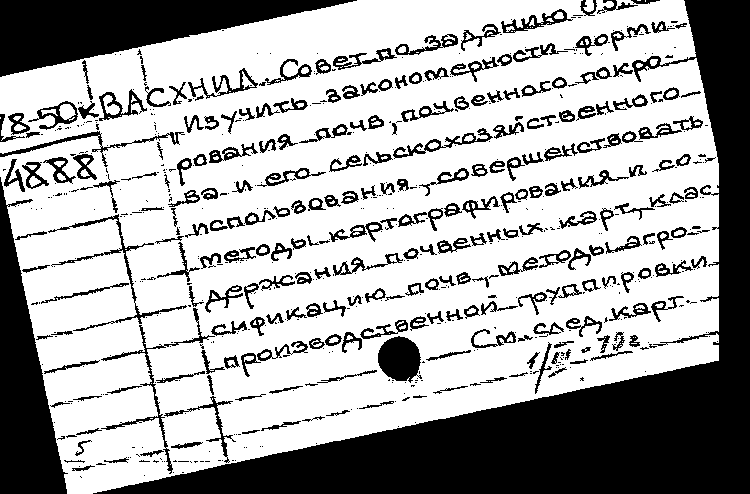 78-50к ВАСХНИЛ. Совет по заданию 05.
4888 „Изучить закономерности форми-
рования почв, почвенного покро-
ва и его сельскохозяйственного
использования, совершенствовать
методы картографирования и со-
держания почвенных карт, клас-
сификацию почв, методы агро-
производственной группировки
См. след. карт.
1/III-79г
5